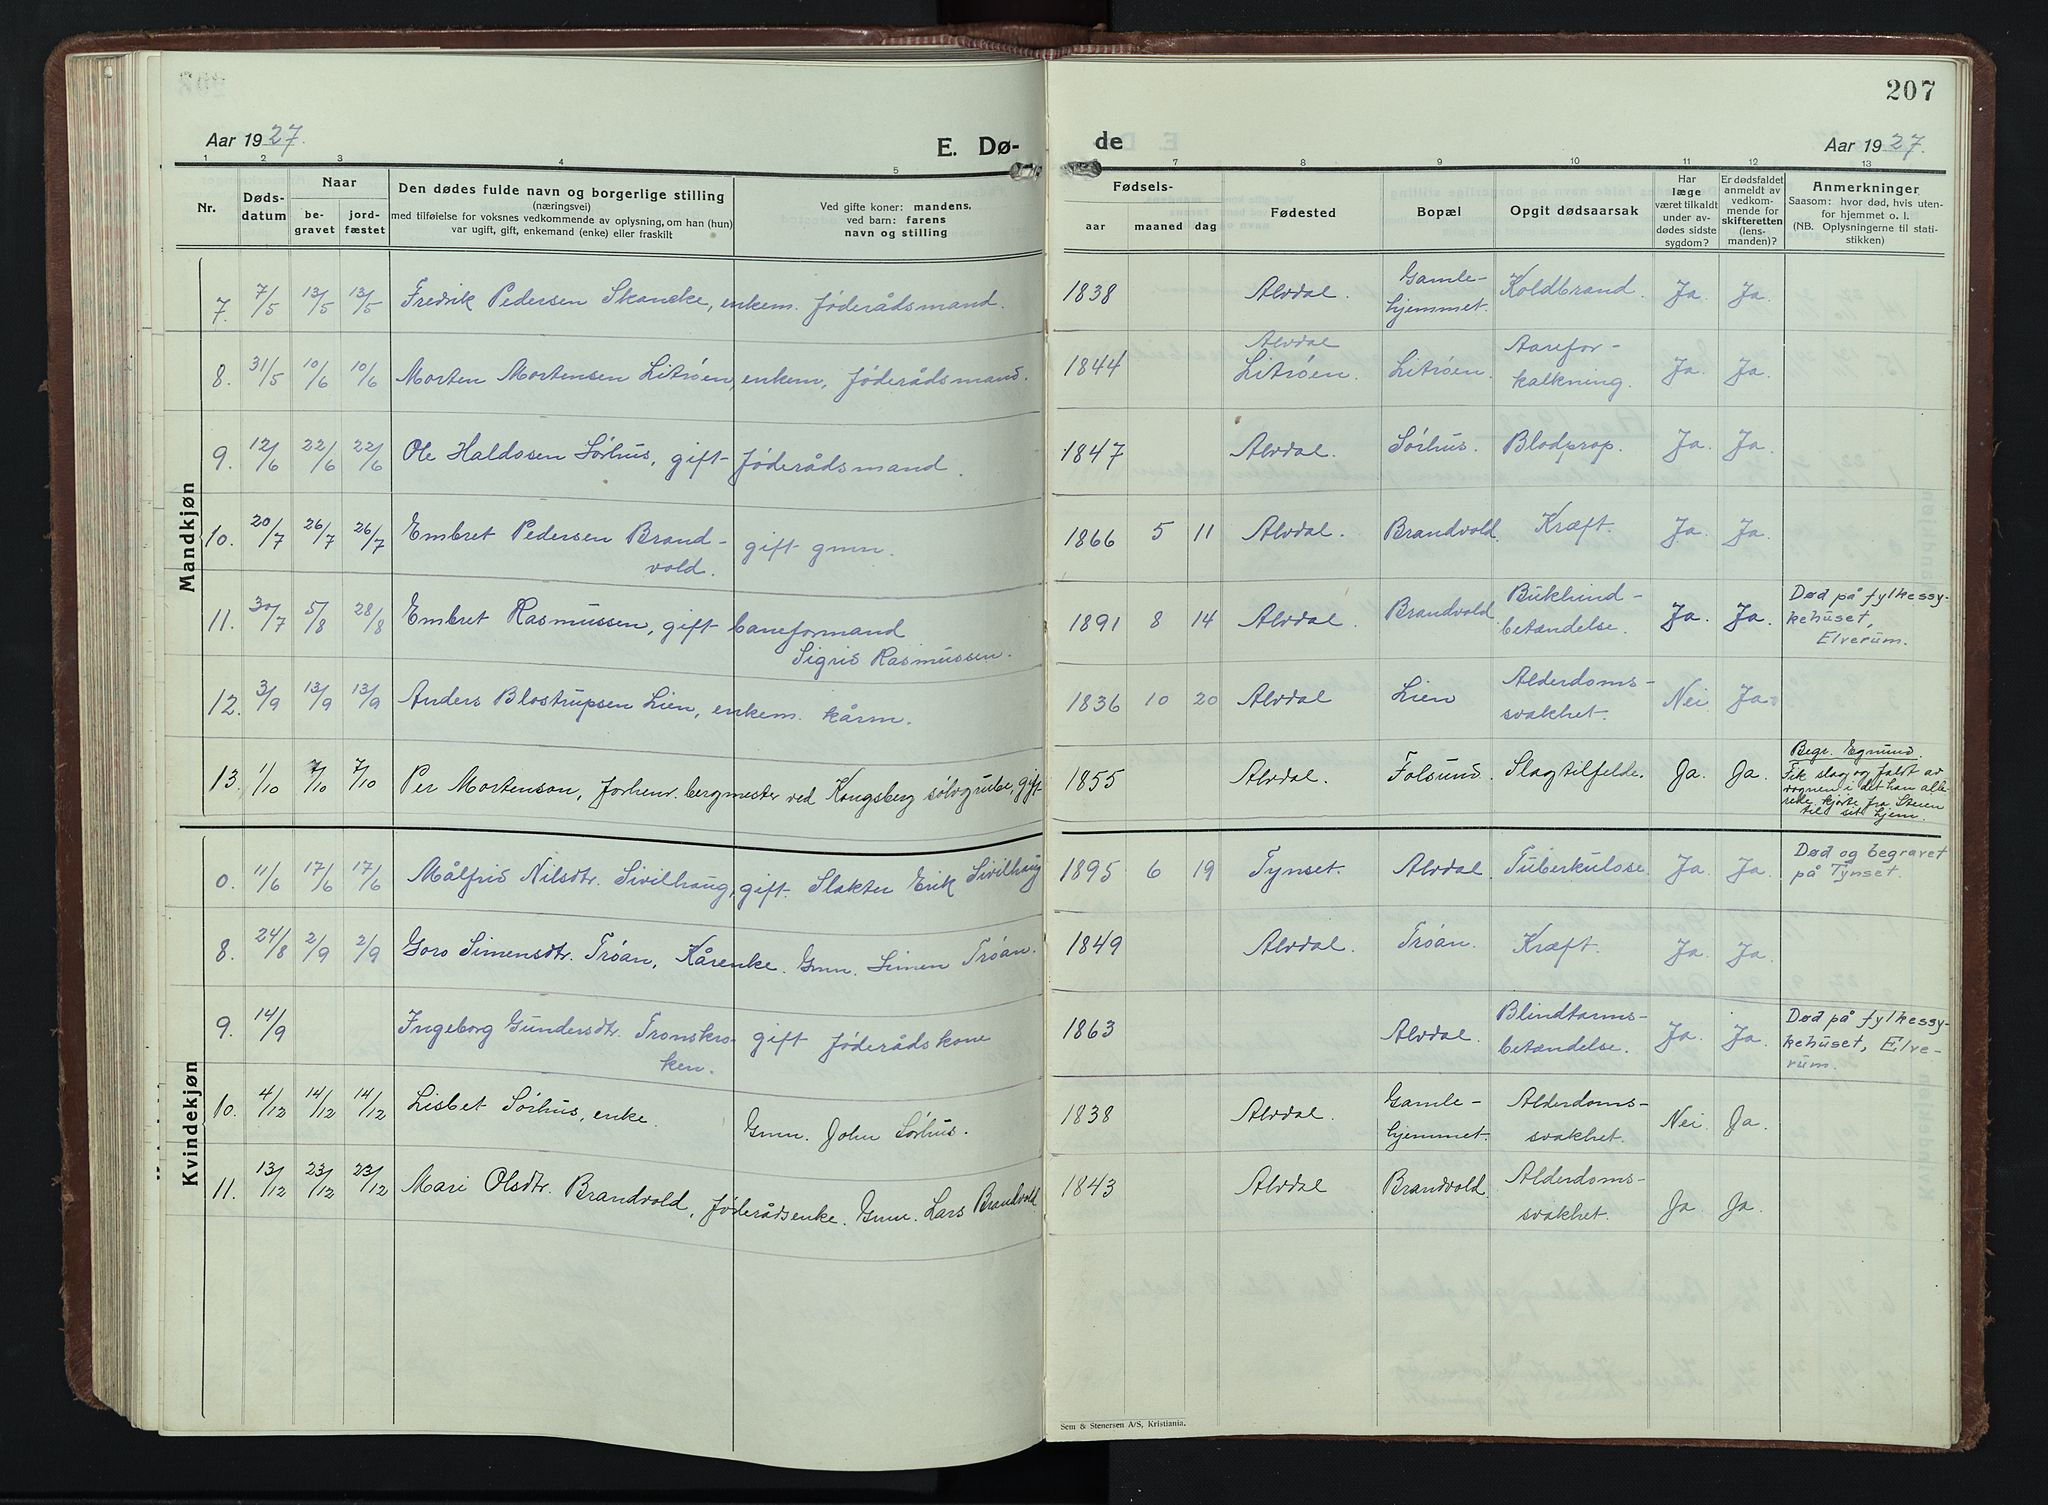 207
Aar 1927.
E. Dø-
de
Aar 1927.
1 2 3 4 5 7 8 9 10 11 12 13
Nr.
Døds-
datum
Naar
be-
gravet
jord-
fæstet
Den dødes fulde navn og borgerlige stilling
(næringsvei)
med tilføielse for voksnes vedkommende av oplysning, om han (hun)
var ugift, gift, enkemand (enke) eller fraskilt
Ved gifte koner: mandens.
ved barn: farens
navn og stilling
Fødsels-
aar maaned dag
Fødested
Bopæl
Opgit dødsaarsak
Har
læge
været tilkaldt
under av-
dødes sidste
sygdom?
Er dødsfaldet
anmeldt av
vedkom-
mende for
skifteretten
(lens-
manden)?
Anmerkninger
Saasom: hvor død, hvis uten-
for hjemmet o. l.
(NB. Oplysningerne til stati-
stikken)
Mandkjøn
7. 7/5 13/5 13/5 Fredrik Pedersen Skancke, enkem. føderådsmand. 1838 Alvdal. Gamle-
hjemmet. Koldbrand. Ja. Ja.
8. 31/5 10/6 10/6 Morten Mortensen Litrøen, enkem, føderådsmand. 1844 Alvdal
Litrøen. Litrøen. Aarefor-
kalkning. Ja. Ja.
9. 12/6 22/6 22/6 Ole Haldosen Sørhus, gift føderådsmand. 1847 Alvdal. Sørhus. Blodprop. Ja. Ja.
10. 20/7 26/7 26/7 Embret Pedersen Brand-
vold. gift gmn. 1866 5 11 Alvdal. Brandvold. Kræft. Ja. Ja.
11. 30/7 5/8 28/8 Embret Rasmussen, gift baneformand
Sigris Rasmussen. 1891 8 14 Alvdal. Brandvold. Bukhind-
betændelse. Ja. Ja. Død på fylkessy-
kehuset,
Elverum.
12. 3/9 13/9 13/9 Anders Blostrupsen Lien, enkem. kårm. 1836 10 20 Alvdal Lien Alderdoms-
svakhet. Nei Ja
13. 1/10 7/10 7/10 Per Mortenson, forhenv. bergmester ved Kongsberg sølvgrube, gift 1855 Alvdal. Folsund. Slagtilfelde. Ja. Ja. Begr. Egnund.
Fik slag og faldt av
vognen i det han alle-
rede kjørte fra Steien
til sit hjem.
Kvindekjøn
0. 11/6 17/6 17/6 Målfrid Nilsdtr. Sivilhaug, gift. Slakter Erik Sivilhaug 1895 6 19 Tynset. Alvdal. Tuberkulose Ja. Ja. Død og begravet
på Tynset.
8. 24/8 2/9 2/9 Goro Simensdtr. Trøan, Kårenke. Gmn. Simen Trøan. 1849 Alvdal. Trøan. Kræft. Ja. Ja.
9. 14/9 Ingeborg Gundersdtr. Tronskro-
ken. gift føderådskone 1863 Alvdal. Blindtarms-
betændelse. Ja. Ja. Død på fylkessy-
kehuset, Elve-
rum.
10. 4/12 14/12 14/12 Lisbet Sørhus, enke. Gmn. John Sørhus. 1838 Alvdal. Gamle-
hjemmet. Alderdoms-
svakhet. Nei Ja.
11. 13/12 23/12 23/12 Mari Olsdtr. Brandvold, føderådsenke. Gmn. Lars Brandvold 1843 Alvdal Brandvold Alderdoms-
svakhet. Ja. Ja.
Sem & Stenersen A/S, Kristiania.